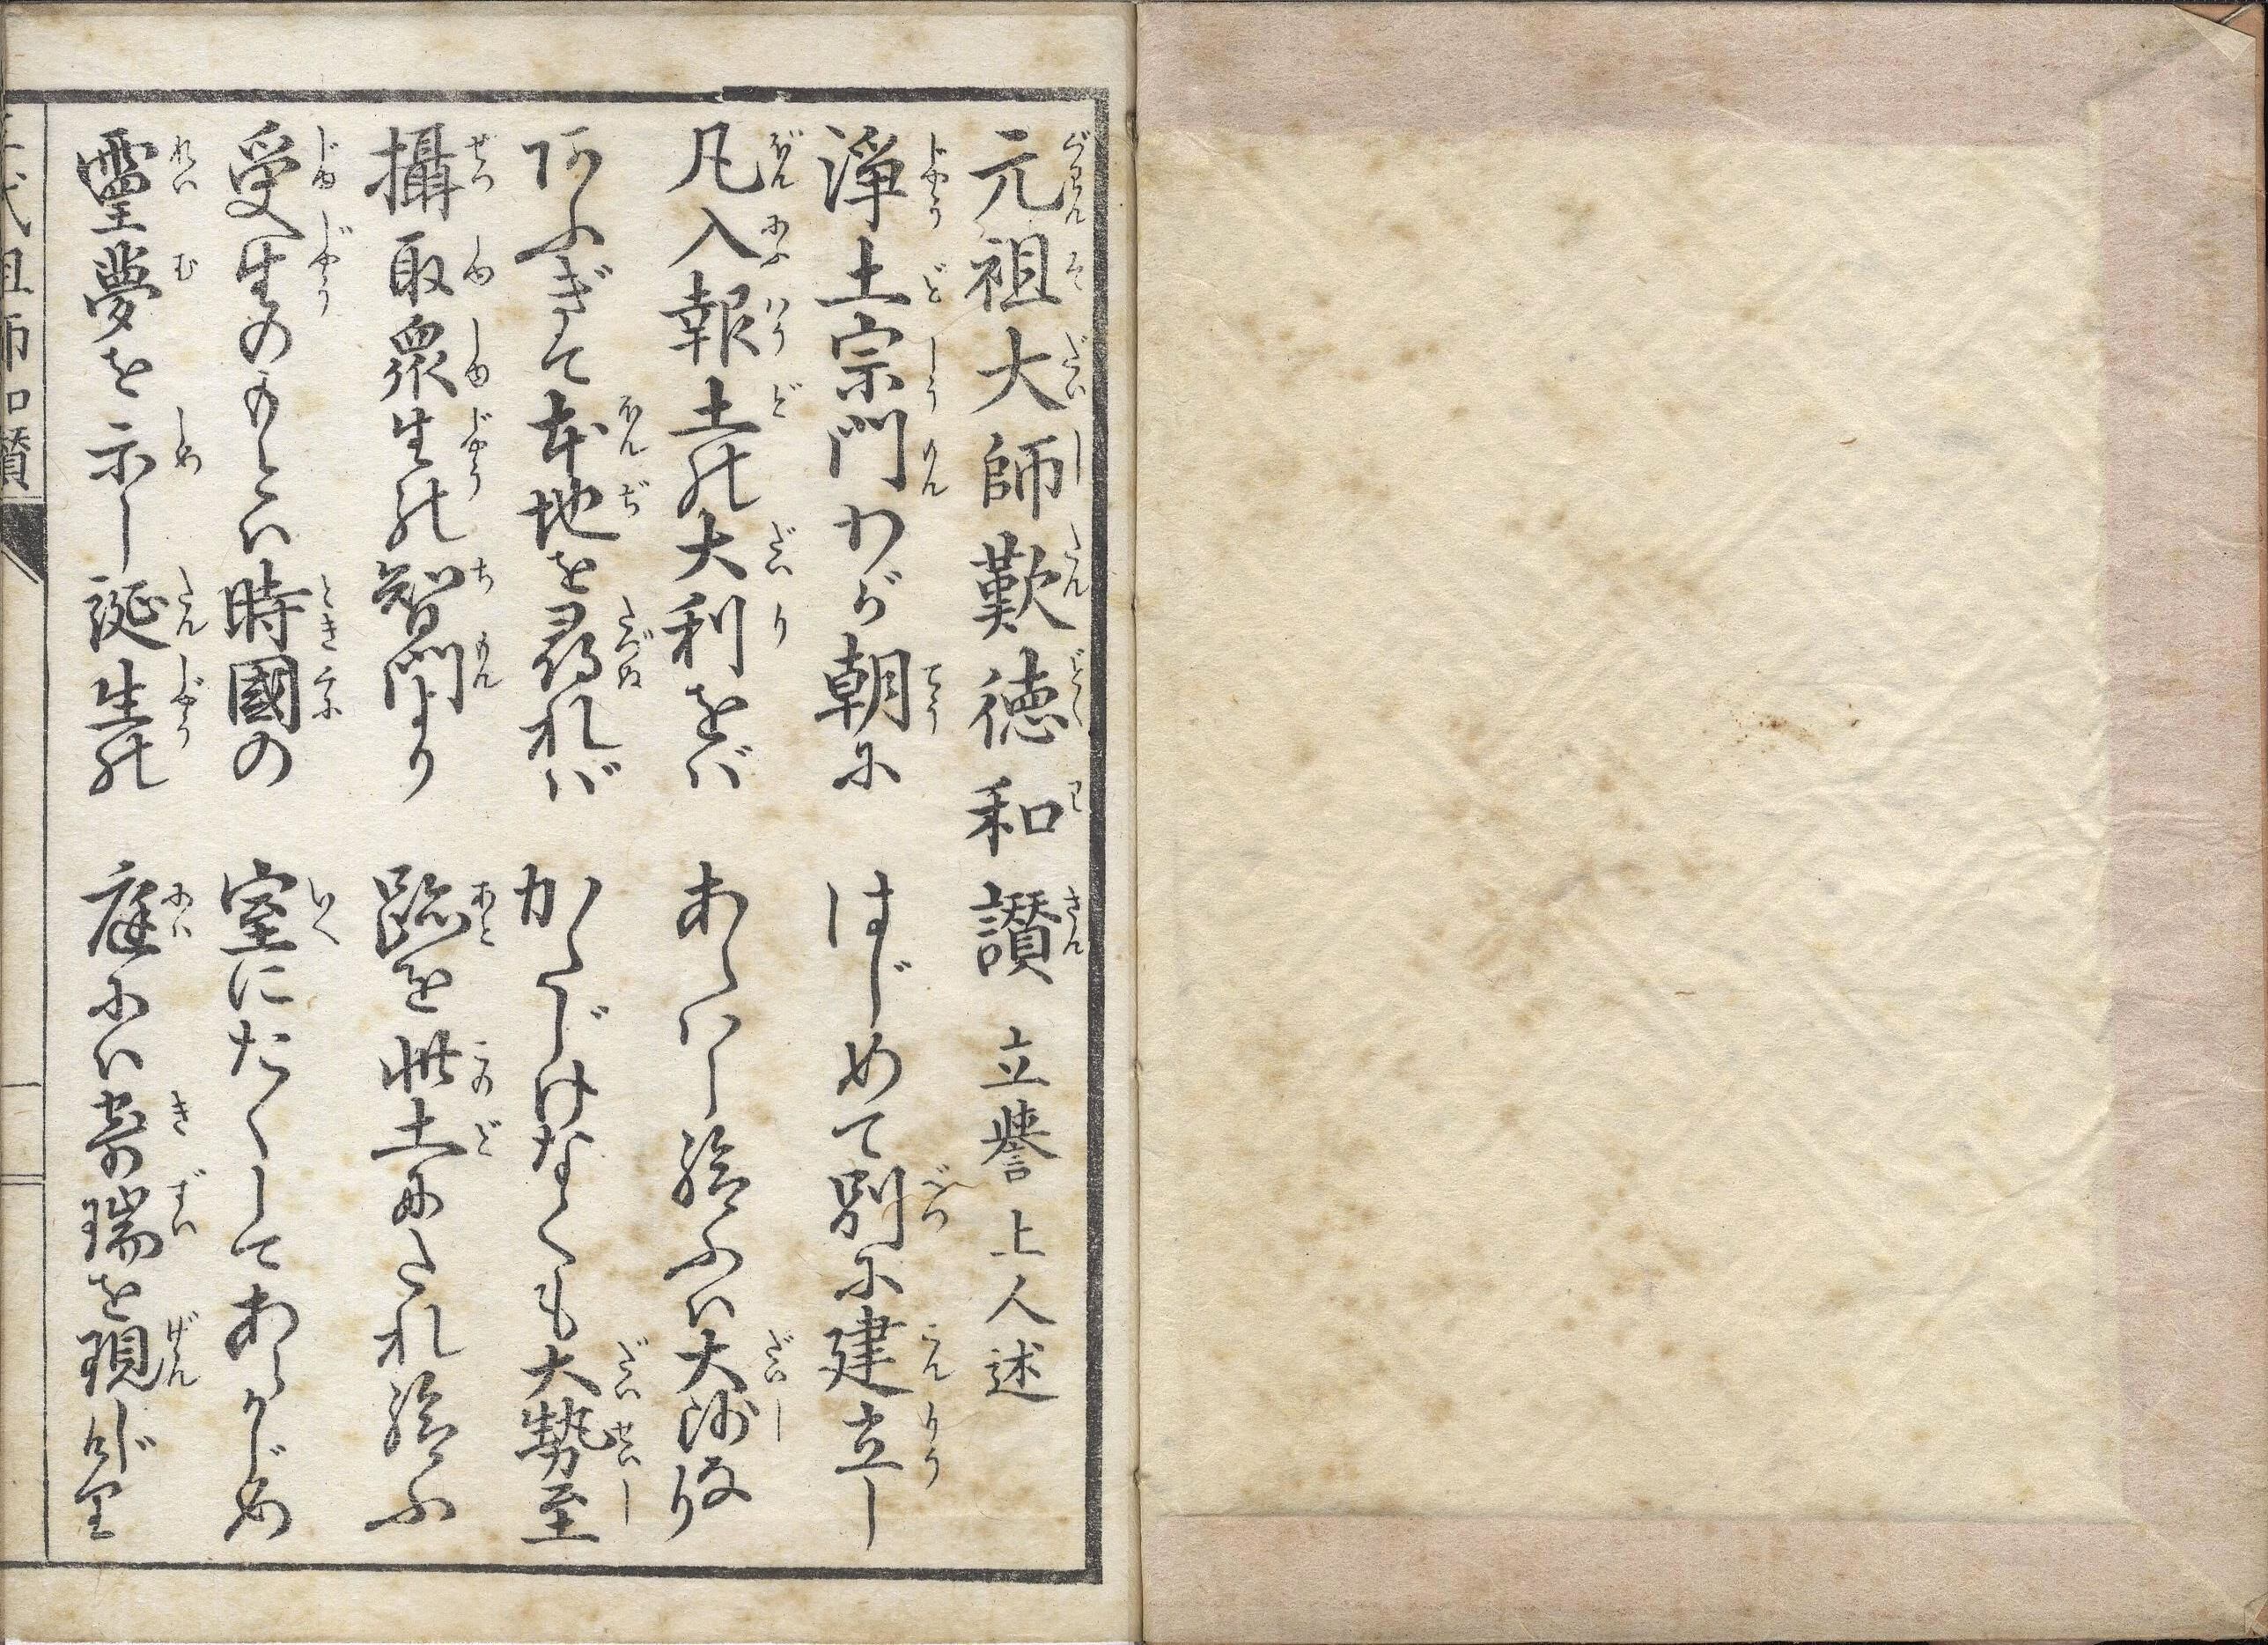 元祖大師歎徳和讃 立誉上人述
浄土宗門わが朝に はじめて別に建立し
凡入報土の大利をば あらはし給ふは大師なり
あふぎて本地を尋れば かたじけなくも大勢至
攝取衆生の智門より 跡を此土にたれ給ふ
受生のもとは時國の 室にたくしてあらかじめ
靈夢を示し誕生の 庭には奇瑞を現じけり
代祖師和讃
一